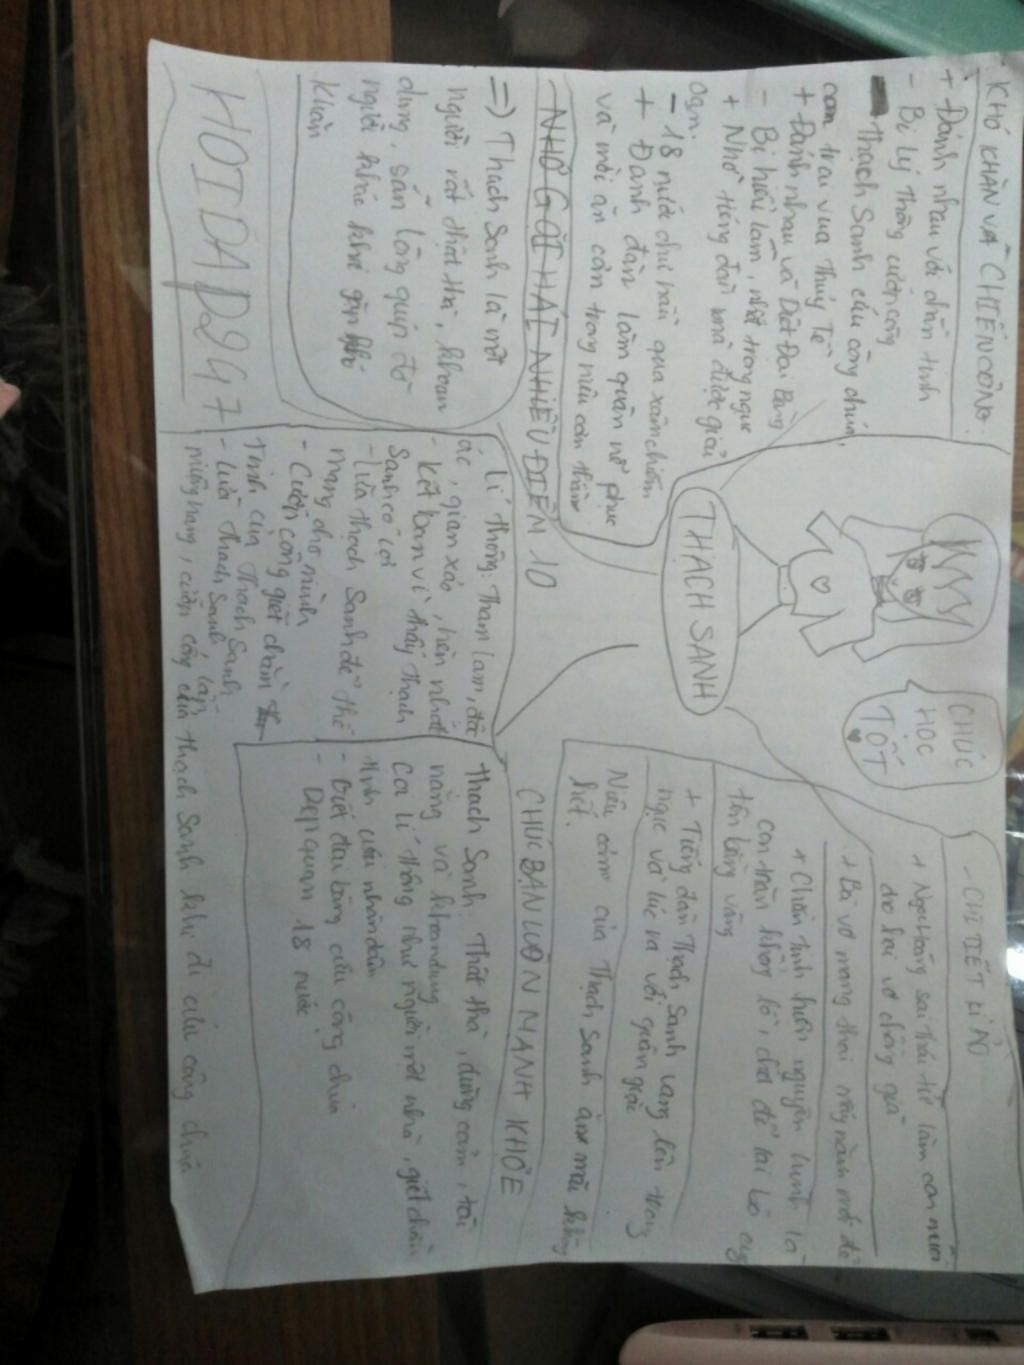 KHÓ KHĂN VÀ CHIẾN CÔNG.
+ Đánh nhau với chằn tinh
- Bị Lý Thông cướp công
Thạch Sanh cứu công chúa,
con trai vua Thủy Tề
+ Đánh nhau và Diệt Đại Bàng
- Bị hiểu lầm, nhốt trong ngục
+ Nhờ tiếng đàn mà được giải
oan.
- 18 nước chư hầu qua xâm chiếm
+ Đánh đàn làm quân nể phục
và mời ăn cơm trong niêu cơm thần
NHỚ GỞI HÁI NHIỀU ĐIỂM 10
=) Thạch Sanh là một
người rất thật thà, khoan
dung, sẵn lòng giúp đỡ
người khác khi gặp khó
khăn
HOIDAP247
CHÚC
HỌC
TỐT
THẠCH SANH
Lí Thông: Tham lam, độc
ác, gian xảo, hèn nhát
- Kết bạn vì thấy Thạch
Sanh có lợi
- Lừa Thạch Sanh để thế
mạng cho mình
- Cướp công giết chằn
Tinh của Thạch Sanh
- Lừa Thạch Sanh lấp
miệng hang, cướp công của Thạch Sanh khi đi cứu công chúa
- CHI TIẾT KÌ ẢO
+ Ngọc Hoàng sai thái tử làm con nuôi
cho hai vợ chồng già
+ Bà vợ mang thai mấy năm mới đẻ
+ Chằn tinh hiện nguyên hình là
con trăn khổng lồ, chết để lại bộ cung
tên bằng vàng
+ Tiếng đàn Thạch Sanh vang lên trong
ngục và lúc ra với quân giặc
Niêu cơm của Thạch Sanh ăn mãi không
hết.
CHÚC BẠN LUÔN MẠNH KHỎE
Thạch Sanh: Thật thà, dũng cảm, tài
năng và khoan dung
Coi Lí Thông như người một nhà, giết chằn
tinh cứu nhân dân
- Giết đại bàng cứu công chúa
- Dẹp quân 18 nước